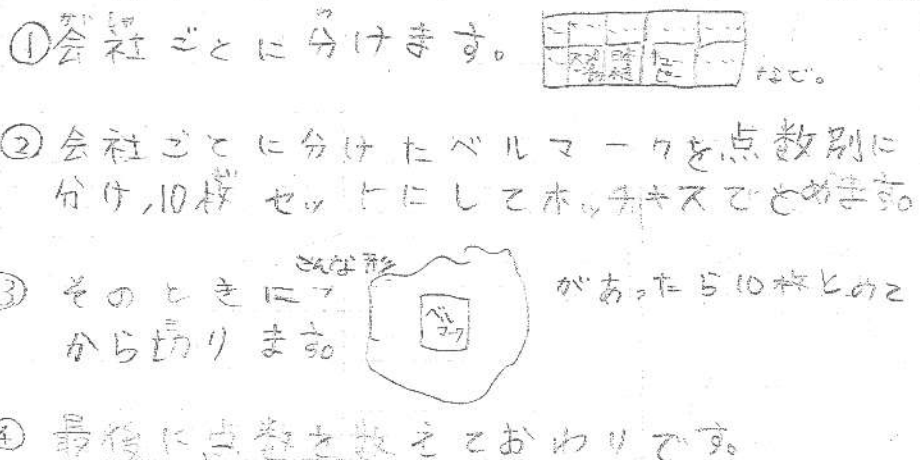 ①会社ごとに分けます。
キューピー
など。
②会社ごとに分けたベルマークを点数別に
分け,10枚セットにしてホッチキスでとめます。
③そのときに、
こんな形
ベルマーク
があったら10枚とめて
から切ります。
④最後に点数を数えておわりです。